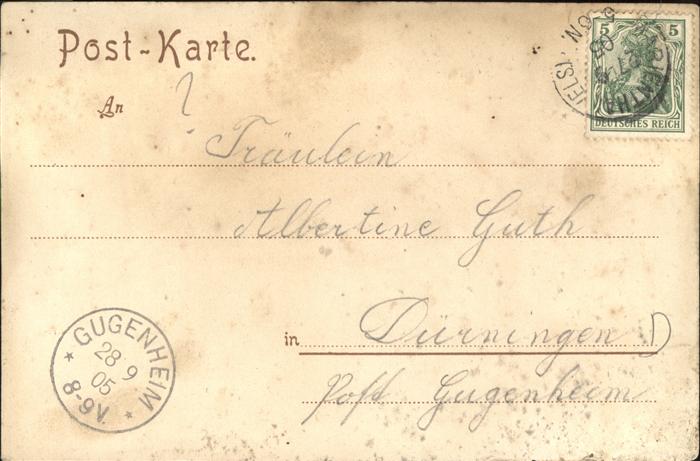 Post-Karte.
An
?
Fräulein
Albertine Guth
in Dürningen D
Post Gugenheim
GUGENHEIM
28 9
05
8-9V.
5 5
DEUTSCHES REICH
(ELS)